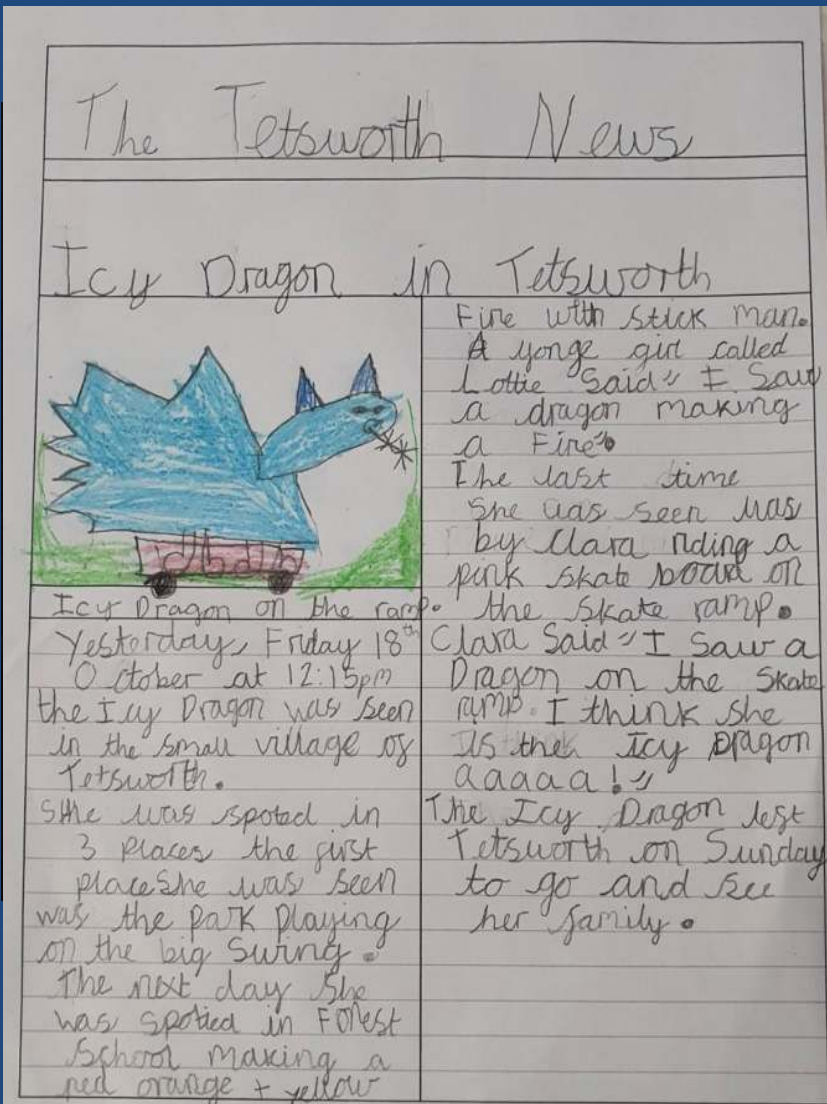 The Tetsworth News
Icy Dragon in Tetsworth
Icy Dragon on the ramp.
Yesterday, Friday 18th
October at 12:15pm
the Icy Dragon was seen
in the small village of
Tetsworth.
She was spoted in
3 places the first
place she was seen
was the park playing
on the big swing.
The next day she
was spotied in Forest
School making a
red orange + yellow
Fire with stick man.
A yonge girl called
Lottie said "I saw
a dragon making
a Fire".
The last time
she was seen was
by Clara riding a
pink skate board on
the skate ramp.
Clara said "I saw a
Dragon on the skate
ramp. I think she
is the Icy Dragon
aaaaa!"
The Icy Dragon left
Tetsworth on Sunday
to go and see
her family.